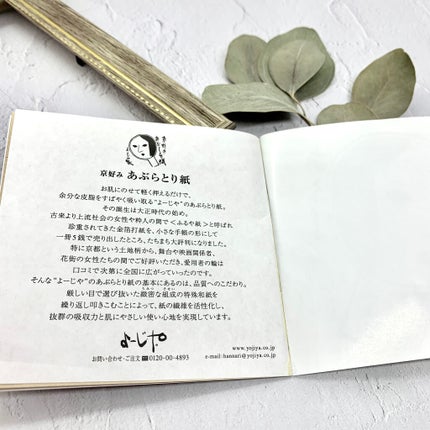 京好み あぶらとり紙
お肌にのせて軽く押えるだけで、
余分な皮脂をすばやく吸い取る"よーじや"のあぶらとり紙。
その誕生は大正時代の始め。
古来より上流社会の女性や粋人の間で<ふるや紙>と呼ばれ
珍重されてきた金箔打紙を、小さな手帳の形にして
一冊5銭で売り出したところ、たちまち大評判になりました。
特に京都という土地柄から、舞台や映画関係者、
花街の女性たちの間でご好評いただき、愛用者の輪は
口コミで次第に全国に広がっていったのです。
そんな"よーじや"のあぶらとり紙の基本にあるのは、品質へのこだわり。
厳しい目で選び抜いた緻密な組成の特殊和紙を
繰り返し叩きこむことによって、紙の繊維を活性化し、
抜群の吸収力と肌にやさしい使い心地を実現しています。
よーじや
お問い合わせ・ご注文 ☎0120-00-4893
www.yojiya.co.jp
e-mail:hannari@yojiya.co.jp